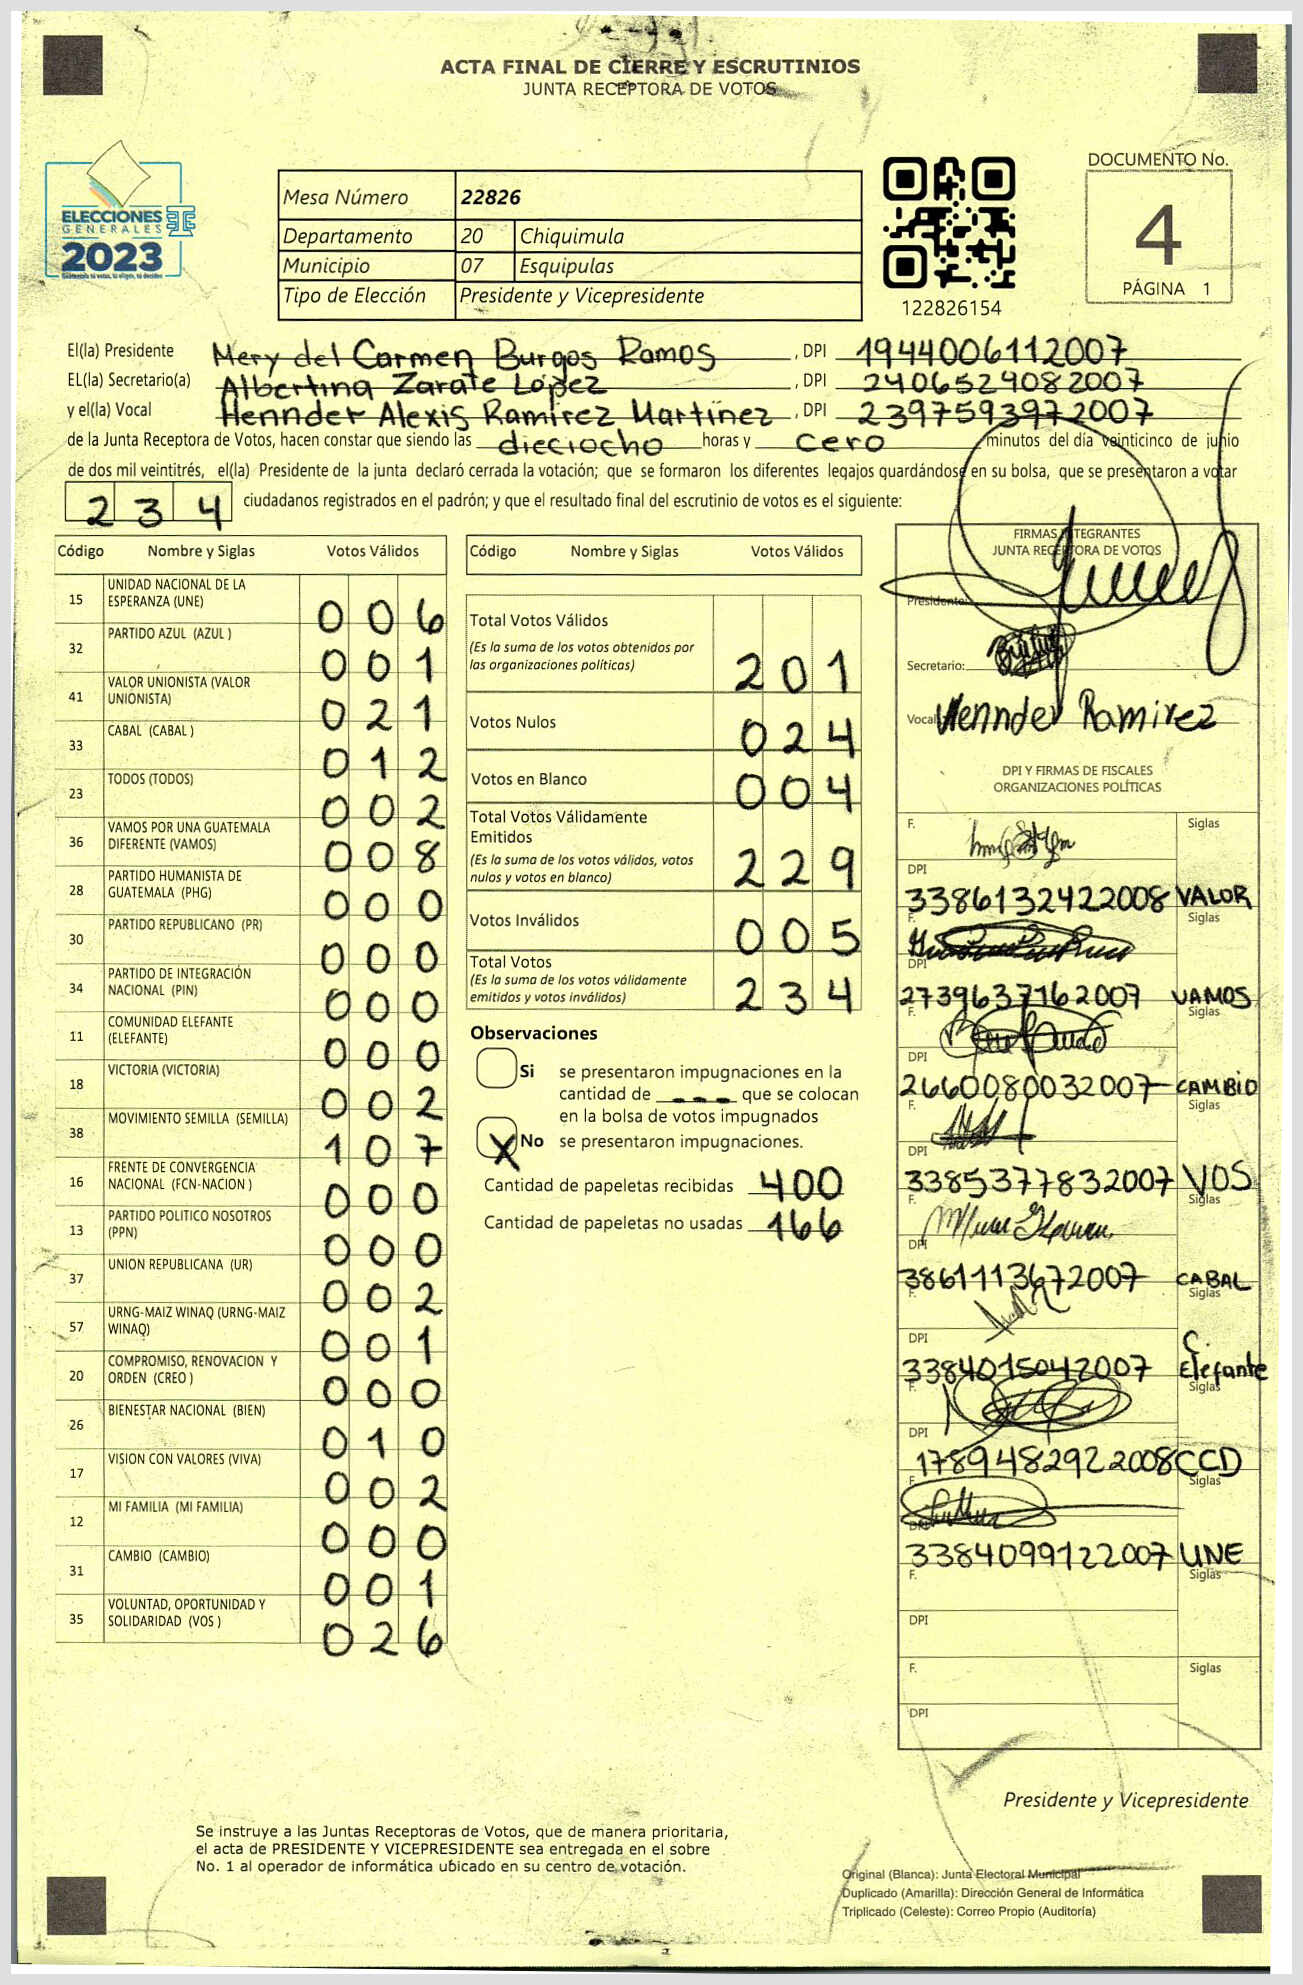 ACTA FINAL DE CIERRE Y ESCRUTINIOS
JUNTA RECEPTORA DE VOTOS
ELECCIONES
GENERALES
2023
Mesa Número 22826
Departamento 20 Chiquimula
Municipio 07 Esquipulas
Tipo de Elección Presidente y Vicepresidente
122826154
DOCUMENTO No.
4
PÁGINA 1
El(la) Presidente Mery del Carmen Burgos Ramos , DPI 1944006112007
EL(la) Secretario(a) Albertina Zarate López , DPI 2406529082007
y el(la) Vocal Hennder Alexis Ramirez Martínez , DPI 2397593972007
de la Junta Receptora de Votos, hacen constar que siendo las dieciocho horas y cero minutos del día veinticinco de junio
de dos mil veintitrés, el(la) Presidente de la junta declaró cerrada la votación; que se formaron los diferentes legajos quardándose en su bolsa, que se presentaron a votar
234 ciudadanos registrados en el padrón; y que el resultado final del escrutinio de votos es el siguiente:
Código Nombre y Siglas Votos Válidos
15 UNIDAD NACIONAL DE LA
ESPERANZA (UNE) 006
32 PARTIDO AZUL (AZUL ) 001
41 VALOR UNIONISTA (VALOR
UNIONISTA) 021
33 CABAL (CABAL ) 012
23 TODOS (TODOS) 002
36 VAMOS POR UNA GUATEMALA
DIFERENTE (VAMOS) 008
28 PARTIDO HUMANISTA DE
GUATEMALA (PHG) 000
30 PARTIDO REPUBLICANO (PR) 000
34 PARTIDO DE INTEGRACIÓN
NACIONAL (PIN) 000
11 COMUNIDAD ELEFANTE
(ELEFANTE) 000
18 VICTORIA (VICTORIA) 002
38 MOVIMIENTO SEMILLA (SEMILLA) 107
16 FRENTE DE CONVERGENCIA
NACIONAL (FCN-NACION ) 000
13 PARTIDO POLITICO NOSOTROS
(PPN) 000
37 UNION REPUBLICANA (UR) 002
57 URNG-MAIZ WINAQ (URNG-MAIZ
WINAQ) 001
20 COMPROMISO, RENOVACION Y
ORDEN (CREO ) 000
26 BIENESTAR NACIONAL (BIEN) 010
17 VISION CON VALORES (VIVA) 002
12 MI FAMILIA (MI FAMILIA) 000
31 CAMBIO (CAMBIO) 001
35 VOLUNTAD, OPORTUNIDAD Y
SOLIDARIDAD (VOS ) 026
Código Nombre y Siglas Votos Válidos
Total Votos Válidos
(Es la suma de los votos obtenidos por
las organizaciones políticas) 201
Votos Nulos 024
Votos en Blanco 004
Total Votos Válidamente
Emitidos
(Es la suma de los votos válidos, votos
nulos y votos en blanco) 229
Votos Inválidos 005
Total Votos
(Es la suma de los votos válidamente
emitidos y votos inválidos) 234
Observaciones
Si se presentaron impugnaciones en la
cantidad de --- que se colocan
en la bolsa de votos impugnados
X No se presentaron impugnaciones.
Cantidad de papeletas recibidas 400
Cantidad de papeletas no usadas 166
FIRMAS INTEGRANTES
JUNTA RECEPTORA DE VOTOS
Presidente:
Secretario:
Vocal: Hennder Ramirez
DPI Y FIRMAS DE FISCALES
ORGANIZACIONES POLÍTICAS
F. Siglas
DPI
3386132422008 VALOR
F. Siglas
DPI
2739637162007 VAMOS
F. Siglas
DPI
2660080032007 CAMBIO
F. Siglas
DPI
3385377832007 VOS
F. Siglas
DPI
3861113672007 CABAL
F. Siglas
DPI
3384015042007 C. Elefante
F. Siglas
DPI
1789482922008 CCD
F. Siglas
DPI
3384099122007 UNE
F. Siglas
DPI
F. Siglas
DPI
Presidente y Vicepresidente
Se instruye a las Juntas Receptoras de Votos, que de manera prioritaria,
el acta de PRESIDENTE Y VICEPRESIDENTE sea entregada en el sobre
No. 1 al operador de informática ubicado en su centro de votación.
Original (Blanca): Junta Electoral Municipal
Duplicado (Amarilla): Dirección General de Informática
Triplicado (Celeste): Correo Propio (Auditoría)